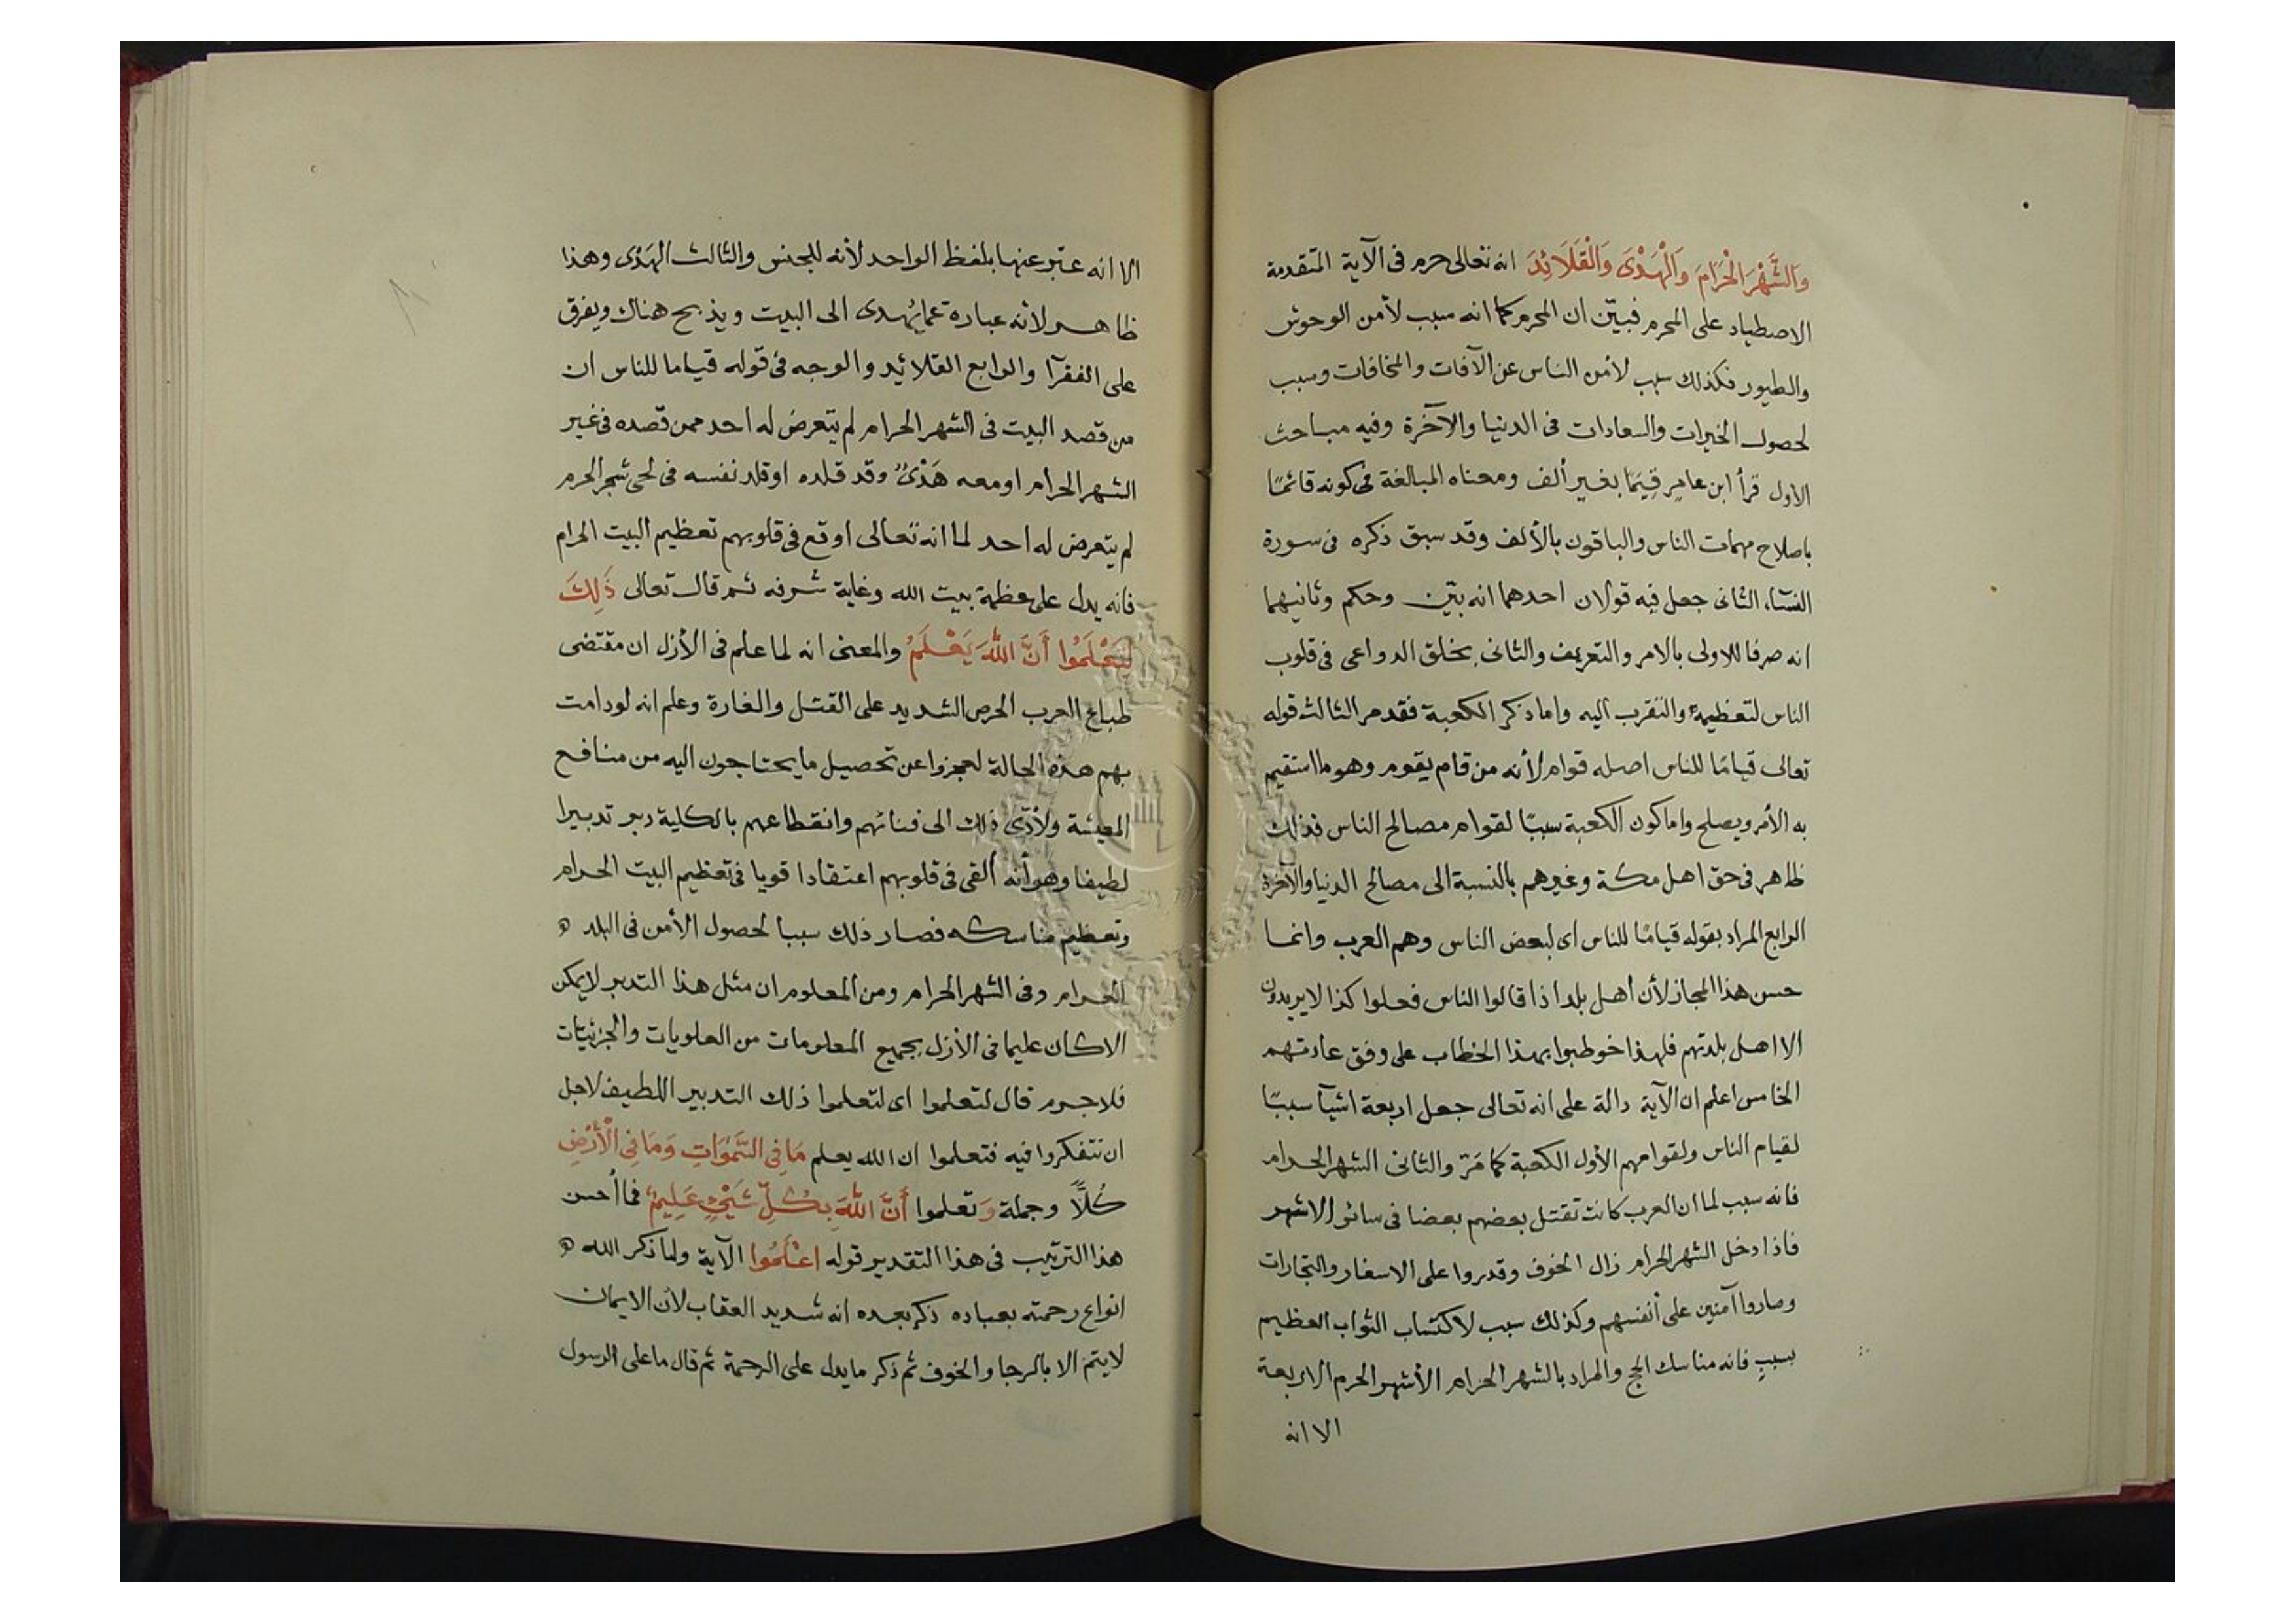 وَالشَّهْرَ الْحَرَامَ وَالْهَدْىَ وَالْقَلَائِدَ انه تعالى حرم فى الآية المتقدمة
الاصطياد على المحرم فبيّن ان المحرم كما انه سبب لأمن الوحوش
والطيور فكذلك سبب لأمن الناس عن الآفات والمخافات وسبب
لحصول الخيرات والسعادات فى الدنيا والآخرة وفيه مباحث
الاول قرأ ابن عامر قِيَمًا بغير ألف ومعناه المبالغة فى كونه قائمًا
باصلاح مهمات الناس والباقون بالألف وقد سبق ذكره فى سورة
النسآء الثانى جعل فيه قولان احدهما انه بيّن وحكم وثانيهما
انه صرفا للاولى بالامر والتعريف والثانى بخلق الدواعى فى قلوب
الناس لتعظيمه والتقرب اليه واما ذكر الكعبة فقد مر الثالث قوله
تعالى قيامًا للناس اصله قوام لأنه من قام يقوم وهو ما استقيم
به الأمر ويصلح واما كون الكعبة سببًا لقوام مصالح الناس فذلك
ظاهر فى حق اهل مكة وغيرهم بالنسبة الى مصالح الدنيا والآخرة
الرابع المراد بقوله قيامًا للناس اى لبعض الناس وهم العرب وانما
حسن هذا المجاز لأن أهل بلد اذا قالوا الناس فعلوا كذا لا يريدون
الا اهل بلدتهم فلهذا خوطبوا بهذا الخطاب على وفق عادتهم
الخامس اعلم ان الآية دالة على انه تعالى جعل اربعة اشيآ سببًا
لقيام الناس ولقوامهم الأول الكعبة كما مَرّ والثانى الشهر الحرام
فانه سبب لما ان العرب كانت تقتل بعضهم بعضا فى سائر الاشهر
فاذا دخل الشهر الحرام زال الخوف وقدروا على الاسفار والتجارات
وصاروا آمنين على أنفسهم وكذلك سبب لاكتساب الثواب العظيم
بسبب فانه مناسك الحج والمراد بالشهر الحرام الأشهر الحرم الاربعة
الا انه
الا انه عبّر عنها بلفظ الواحد لأنه للجنس والثالث الهَدْى وهذا
ظاهر لأنه عبارة عما يُهدى الى البيت ويذبح هناك ويفرق
على الفقرآ والرابع القلائد والوجه فى قوله قياما للناس ان
من قصد البيت فى الشهر الحرام لم يتعرض له احد ممن قصده فى غير
الشهر الحرام او معه هَدْىٌ وقد قلده او قلد نفسه فى لحى شجر الحرم
لم يتعرض له احد لما انه تعالى اوقع فى قلوبهم تعظيم البيت الحرام
فانه يدل على عظمة بيت الله وغاية شرفه ثم قال تعالى ذَلِكَ
لِتَعْلَمُوا أَنَّ اللهَ يَعْلَمُ والمعنى انه لما علم فى الأزل ان مقتضى
طباع العرب الحرص الشديد على القتل والغارة وعلم انه لو دامت
بهم هذه الحالة لعجزوا عن تحصيل ما يحتاجون اليه من منافع
المعيشة ولأدّى ذلك الى فنائهم وانقطاعهم بالكلية دبر تدبيرا
لطيفا وهو أنه ألقى فى قلوبهم اعتقادا قويا فى تعظيم البيت الحرام
وتعظيم مناسكه فصار ذلك سببا لحصول الأمن فى البلد
الحرام وفى الشهر الحرام ومن المعلوم ان مثل هذا التدبر لا يمكن
الا كان عليما فى الأزل بجميع المعلومات من العلويات والجزئيّات
فلا جرم قال لتعلموا اى لتعلموا ذلك التدبير اللطيف لاجل
ان تتفكروا فيه فتعلموا ان الله يعلم مَا فِى السَّمٰوَاتِ وَمَا فِى الْأَرْضِ
كُلًّا وجملة وَ تعلموا أَنَّ اللهَ بِكُلِّ شَيْءٍ عَلِيمٌ فما أحسن
هذا الترتيب فى هذا التقدير قوله اعْلَمُوا الآية ولما ذكر الله
انواع رحمته بعباده ذكر بعده انه شديد العقاب لأن الايمان
لا يتم الا بالرجا والخوف ثم ذكر ما يدل على الرحمة ثم قال ما على الرسول